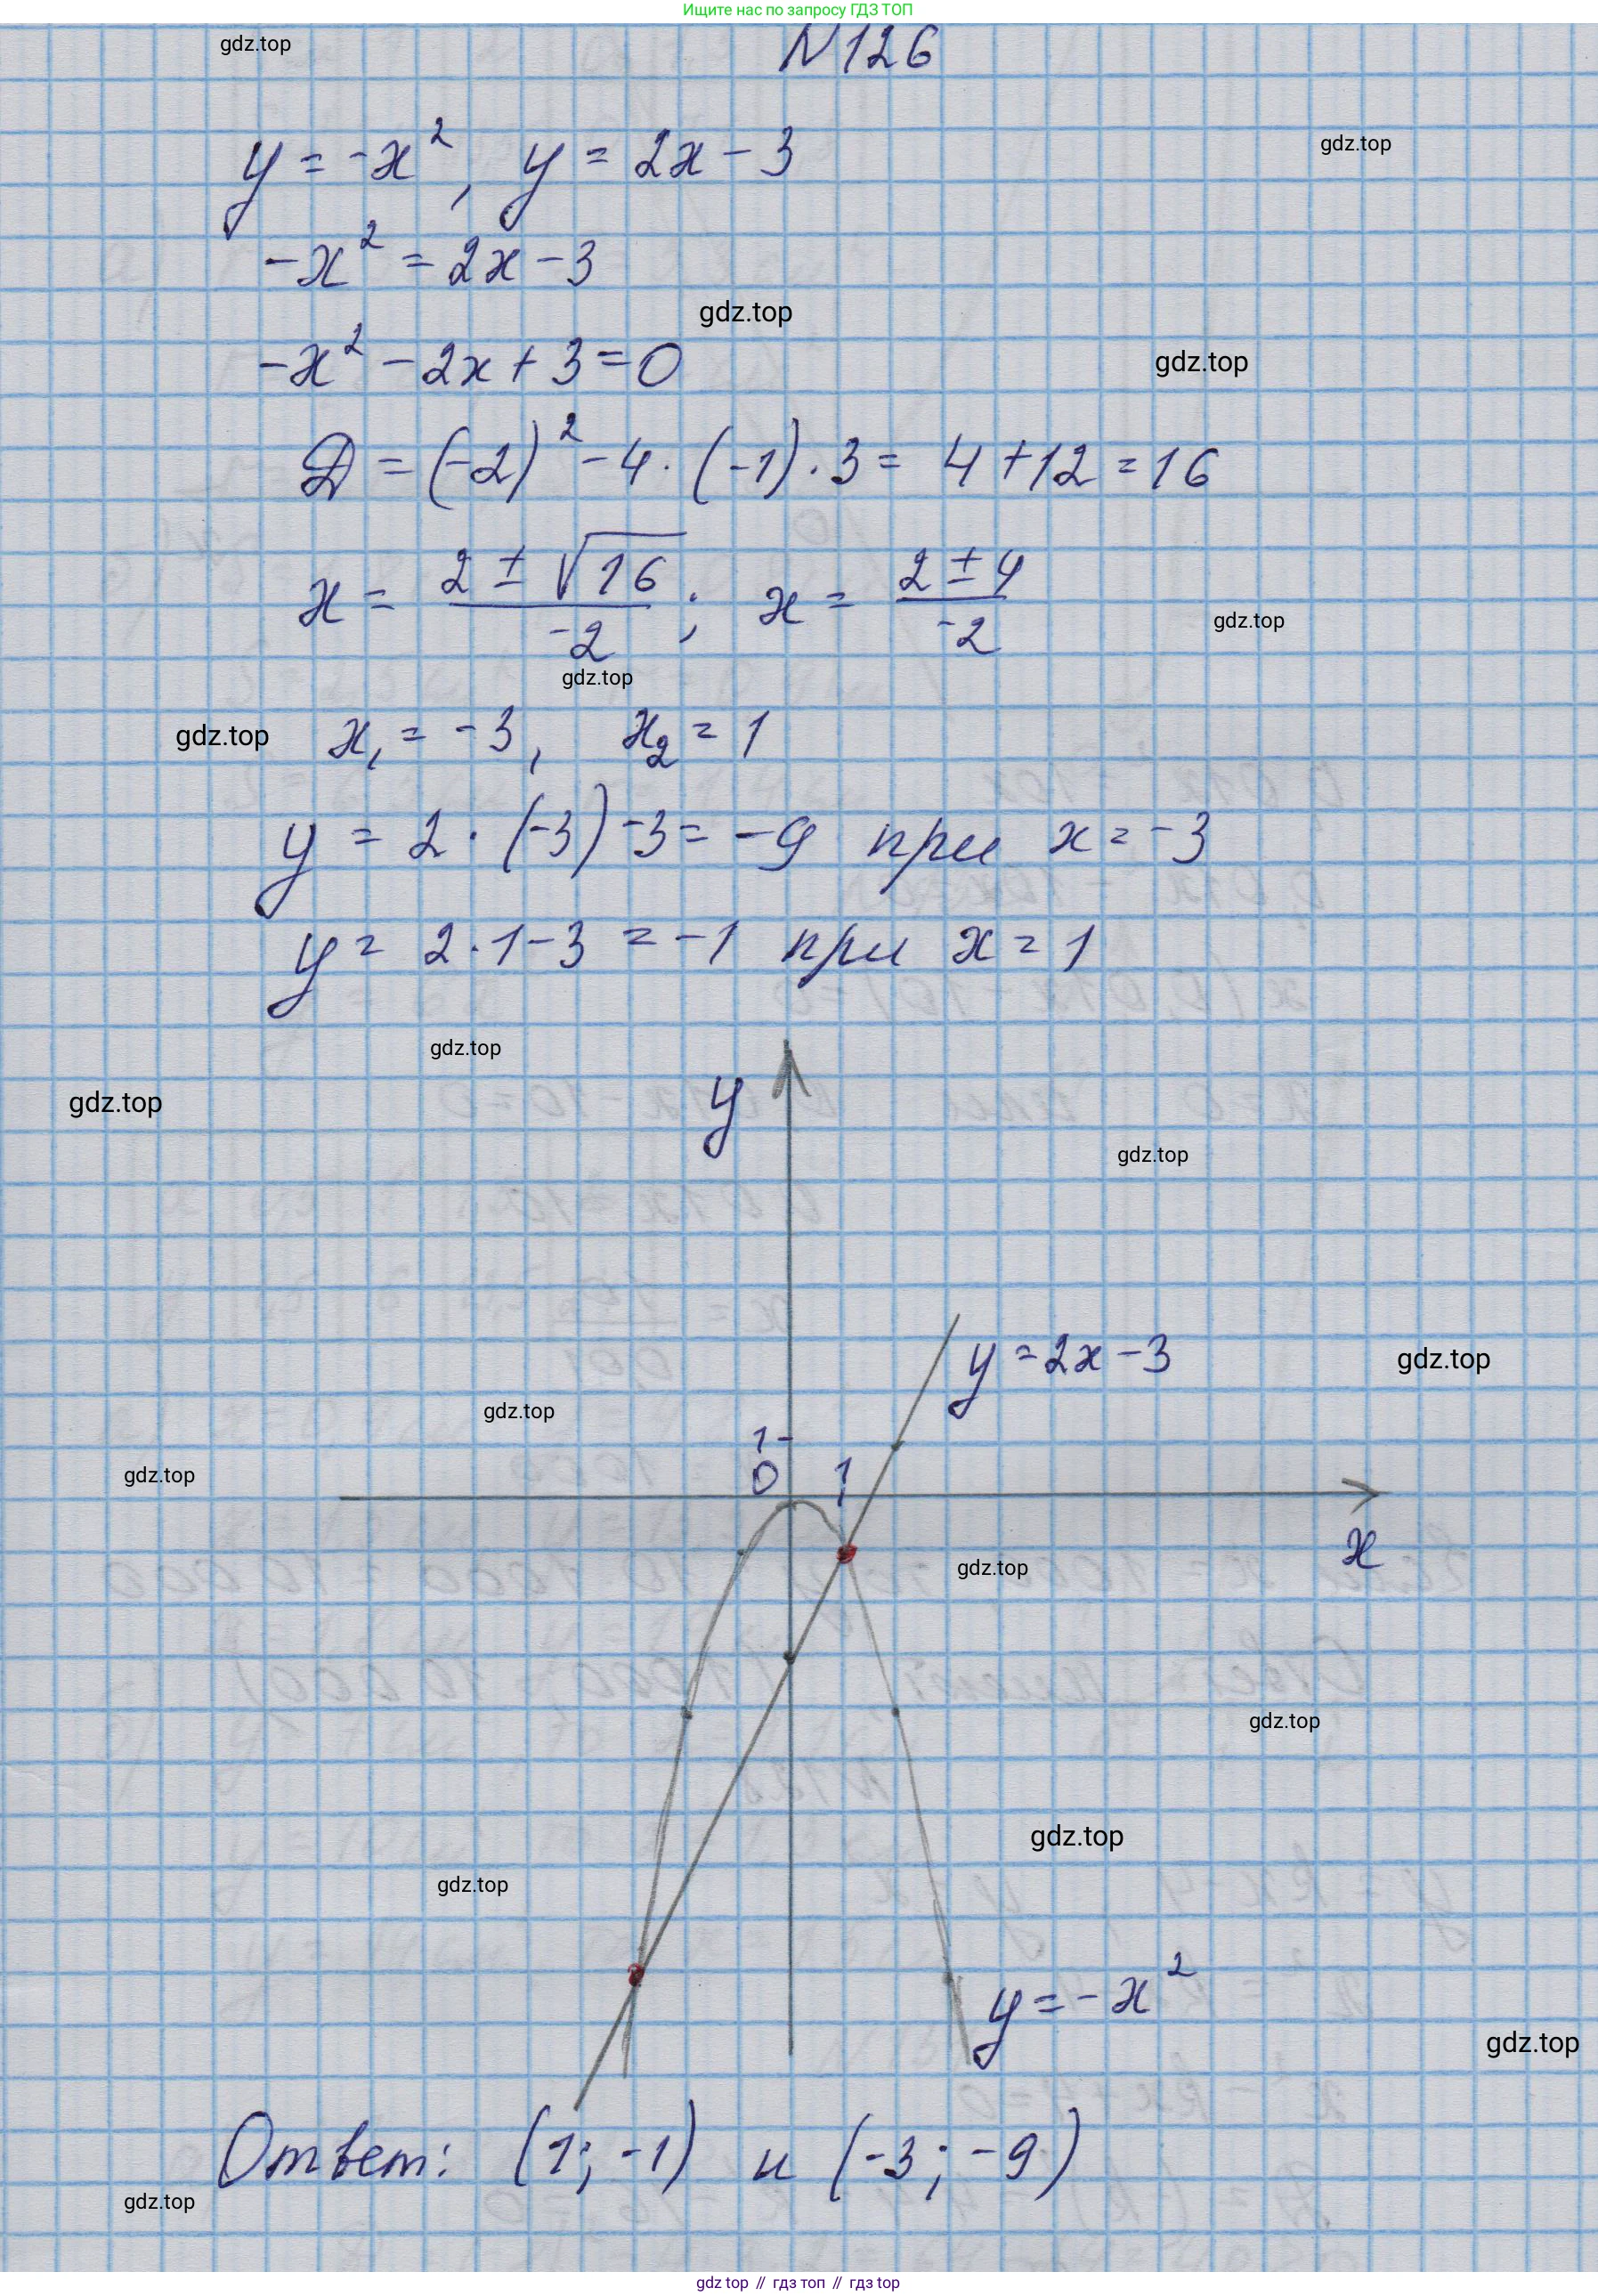 Ищите нас по запросу ГДЗ ТОП
gdz.top
N126
y = -x², y = 2x - 3
gdz.top
-x² = 2x - 3
gdz.top
-x² - 2x + 3 = 0
gdz.top
Д = (-2)² - 4 · (-1) · 3 = 4 + 12 = 16
x = (2 ± √16)/(-2); x = (2 ± 4)/(-2)
gdz.top
gdz.top
gdz.top
x₁ = -3, x₂ = 1
y = 2 · (-3) - 3 = -9 при x = -3
y = 2 · 1 - 3 = -1 при x = 1
gdz.top
gdz.top
y
gdz.top
y = 2x - 3
gdz.top
gdz.top
1
gdz.top
0
1
x
gdz.top
gdz.top
gdz.top
gdz.top
y = -x²
gdz.top
Ответ: (1; -1) и (-3; -9)
gdz.top
gdz top // гдз топ // гдз top